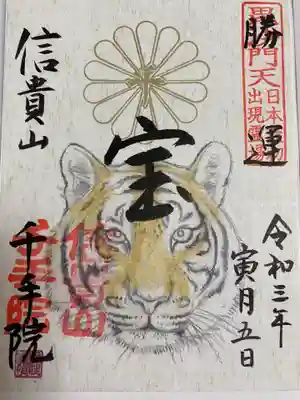 勝運
毘沙門天
日本最初
出現霊場
宝
信貴山
千手院
令和三年
寅月五日